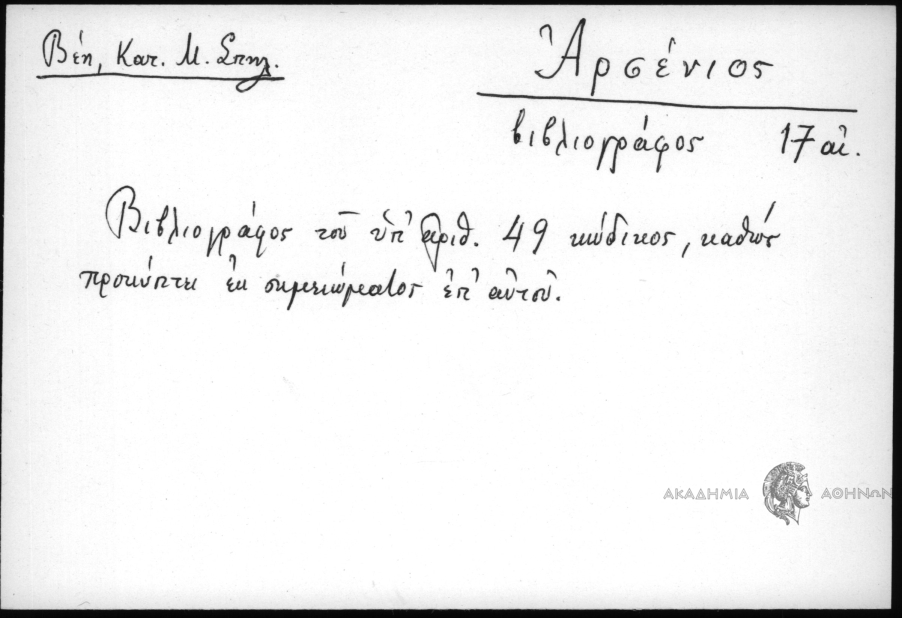 Βέη, Κατ. Μ. Σπηλ.
Ἀρσένιος
βιβλιογράφος 17 αἰ.
Βιβλιογράφος τοῦ ὑπ' ἀριθ. 49 κώδικος, καθώς
προκύπτει ἐκ σημειώματος ἐπ' αὐτοῦ.
ΑΚΑΔΗΜΙΑ ΑΘΗΝΩΝ